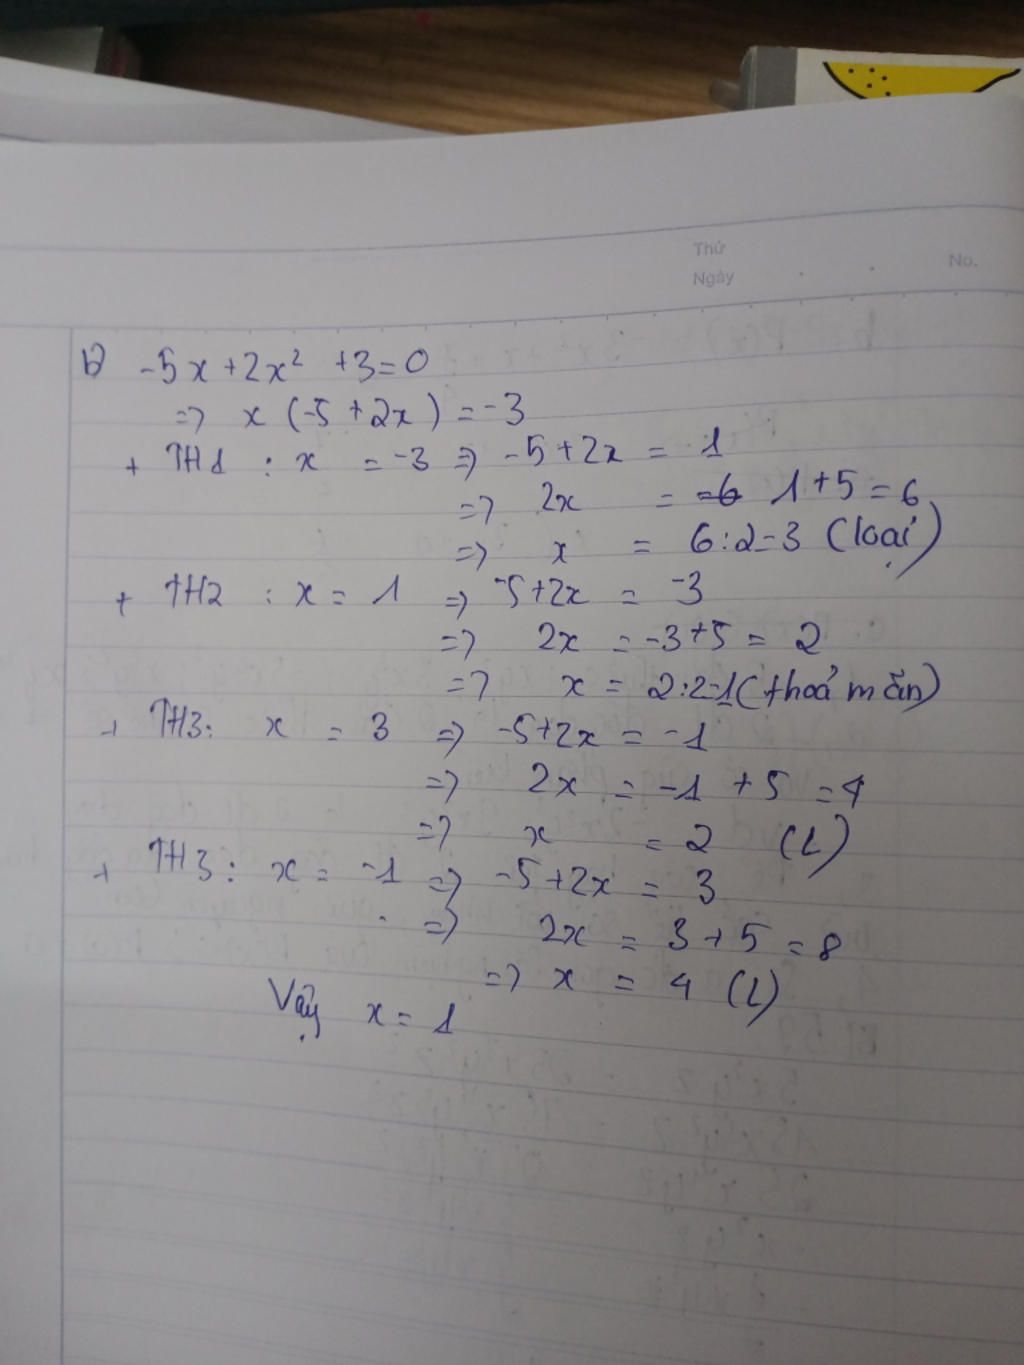 Thứ
Ngày
No.
b) -5x + 2x² + 3 = 0
=> x (-5 + 2x) = -3
+ TH1 : x = -3 => -5 + 2x = 1
=> 2x = 1 + 5 = 6
=> x = 6 : 2 = 3 (loại)
+ TH2 : x = 1 => -5 + 2x = -3
=> 2x = -3 + 5 = 2
=> x = 2 : 2 = 1 (thoả mãn)
+ TH3 : x = 3 => -5 + 2x = -1
=> 2x = -1 + 5 = 4
=> x = 2 (L)
+ TH3 : x = -1 => -5 + 2x = 3
=> 2x = 3 + 5 = 8
=> x = 4 (L)
Vậy x = 1